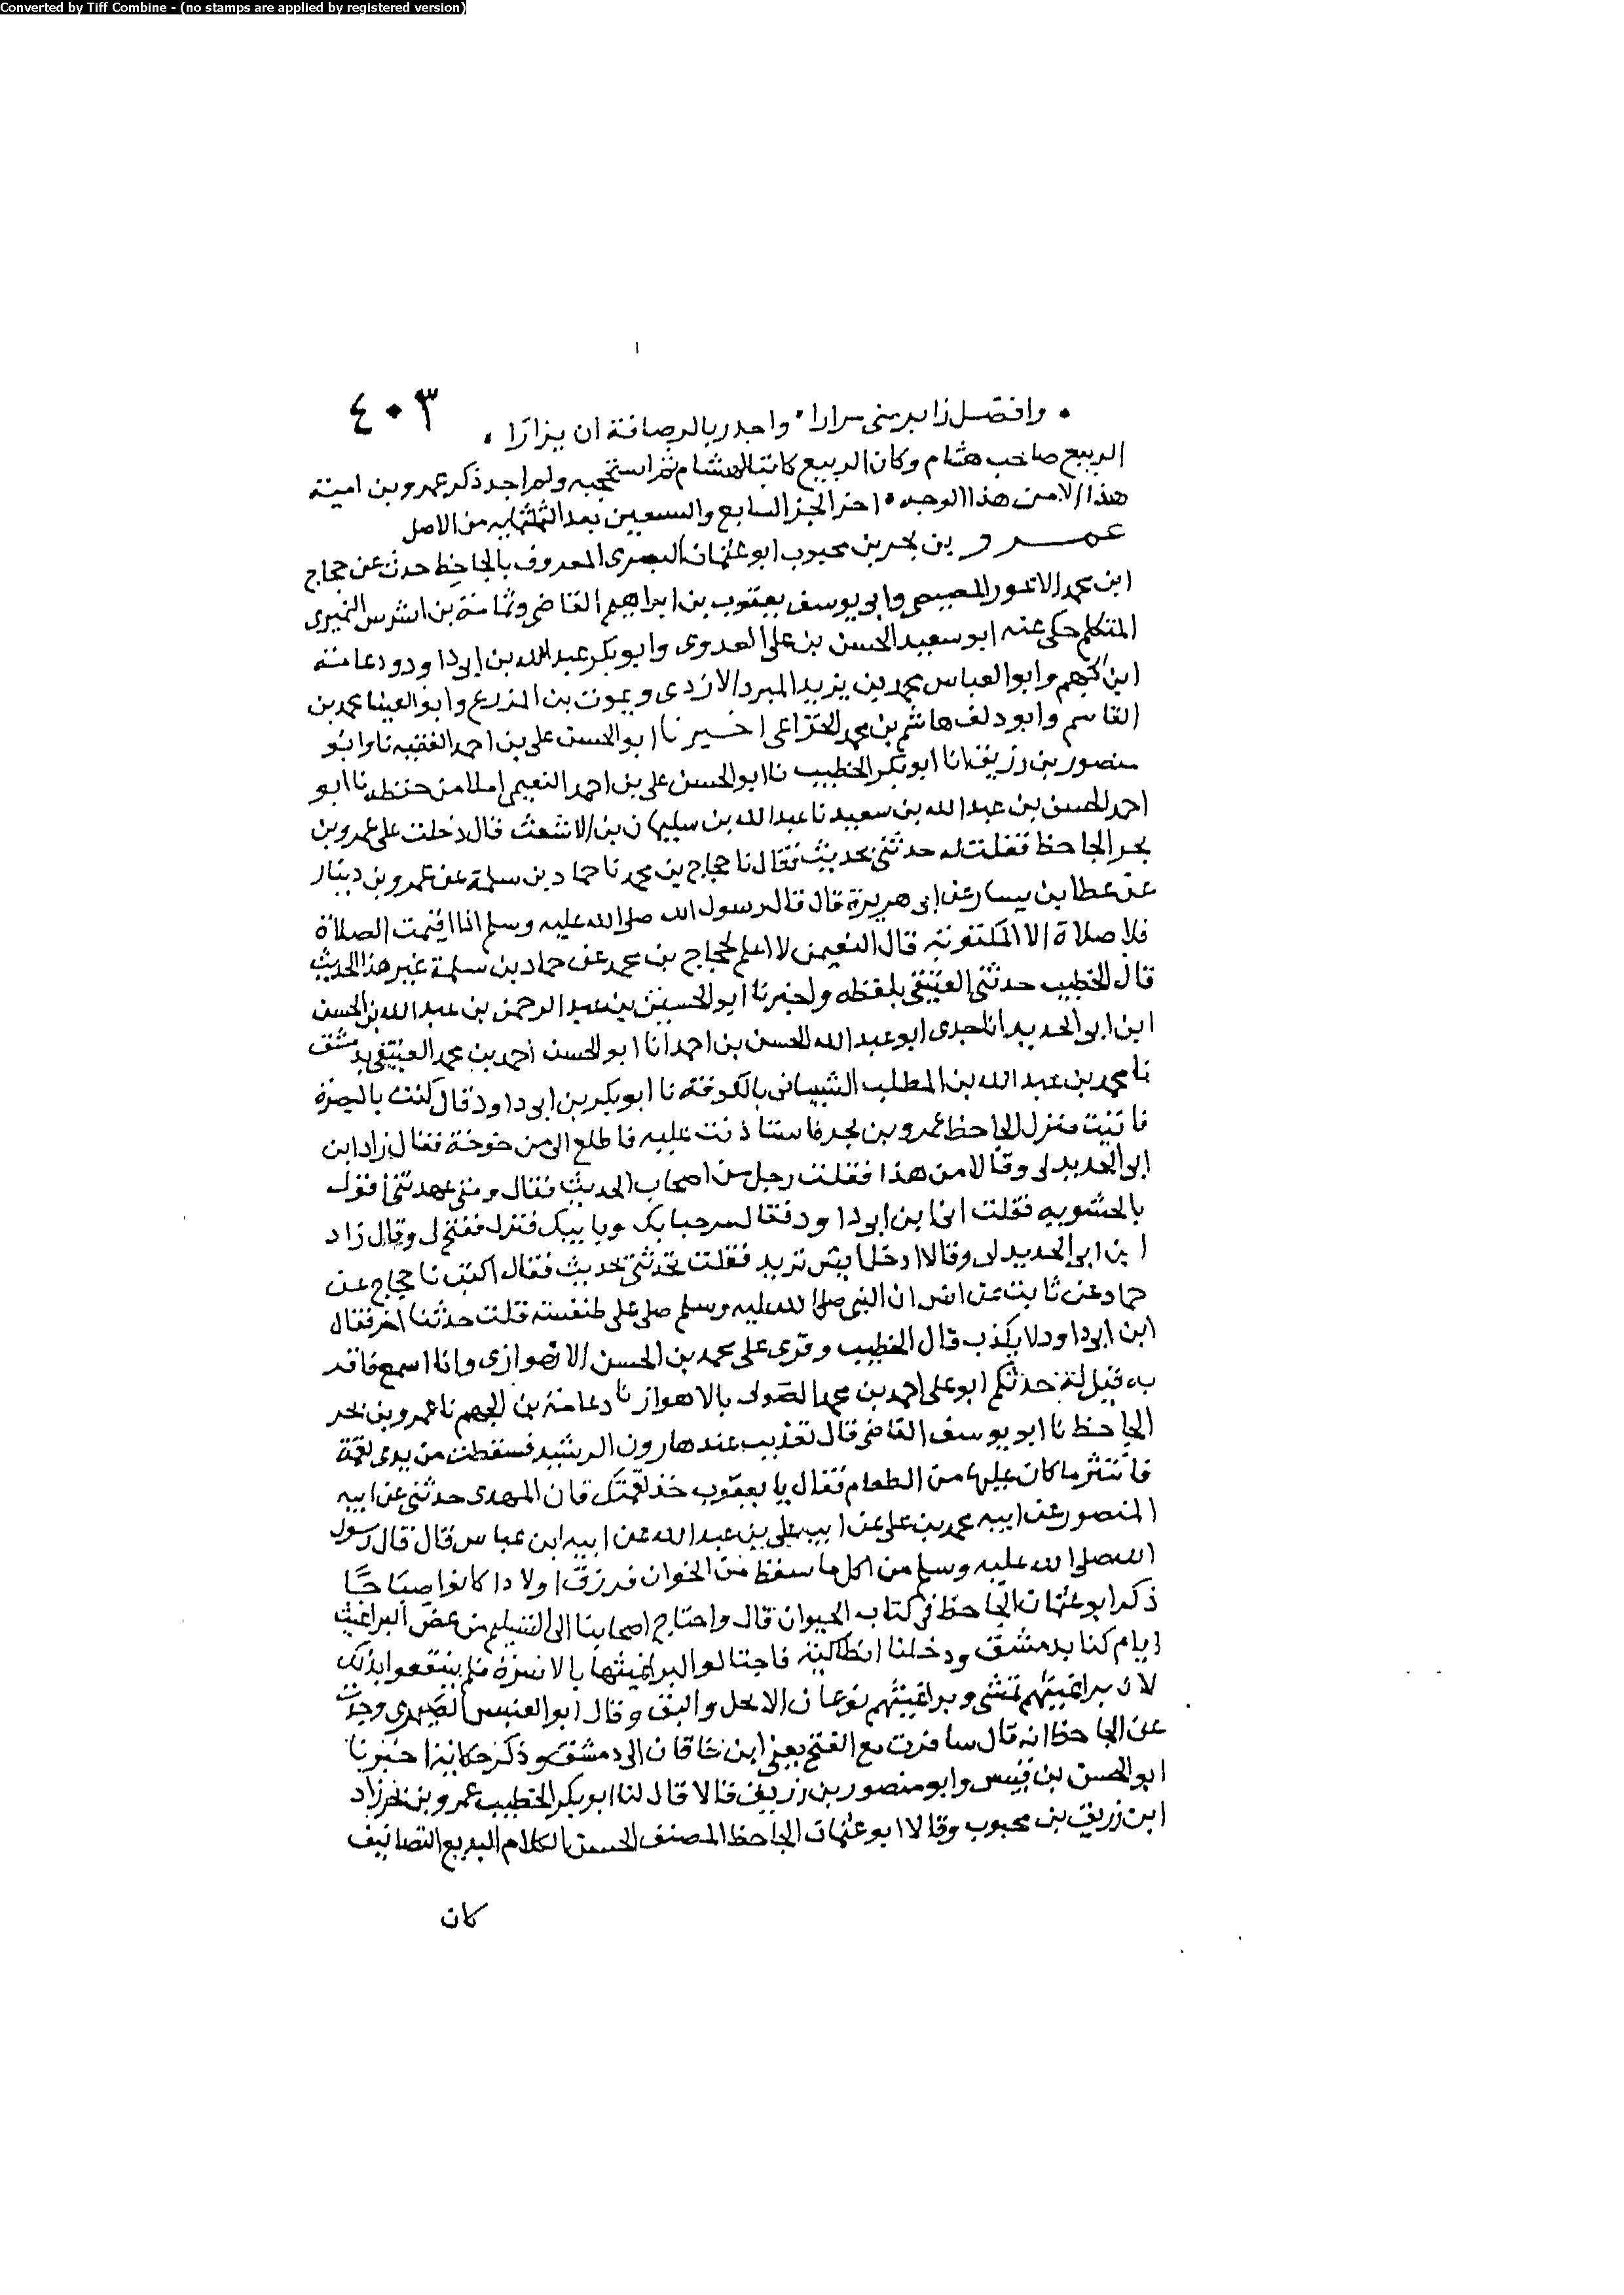 Converted by Tiff Combine - (no stamps are applied by registered version)
٤٠٣
وافضل زابرينى سرارا • واجدر بالرصافة ان يزارا •
الربيع صاحب هشام وكان الربيع كاتبا لهشام ثم استحجبه ولم اجد ذكر عمرو بن امية
هذا الا من هذا الوجه • اخر الجز السابع والسبعين بعد الثلثمايه من الاصل
عمرو بن بحر بن محبوب ابو عثمان البصرى المعروف بالجاحظ حدث عن حجاج
ابن محمد الاعور المصيصى وابى يوسف يعقوب بن ابراهيم القاضى وثمامة بن اشرس النميرى
المتكلم حكى عنه ابو سعيد الحسن بن على العدوى وابو بكر عبد الله بن ابى داود ودعامة
ابن الجهم وابو العباس محمد بن يزيد المبرد الازدى ويموت بن المزرع وابو العينا محمد بن
القاسم وابو دلف هاشم بن محمد الخزاعى اخبرنا ابو الحسن على بن احمد الفقيه نا وابو
منصور بن زريق انا ابو بكر الخطيب نا ابو الحسن على بن احمد النعيمى املا من حفظه نا ابو
احمد الحسن بن عبد الله بن سعيد نا عبد الله بن سليمان بن الاشعث قال دخلت على عمرو بن
بحر الجاحظ فقلت له حدثنى بحديث فقال نا حجاج بن محمد نا حماد بن سلمة عن عمرو بن دينار
عن عطا بن يسار عن ابى هريرة قال قال رسول الله صلى الله عليه وسلم اذا اقيمت الصلاة
فلا صلاة الا المكتوبة قال النعيمى لا اعلم لحجاج بن محمد عن حماد بن سلمة غير هذا الحديث
قال الخطيب حدثنى العتيقى بلفظه واخبرنا ابو الحسين بن عبد الرحمن بن عبد الله بن الحسن
ابن ابى الحديد انا جدى ابو عبد الله الحسن بن احمد انا ابو الحسن احمد بن محمد العتيقى بدمشق
نا محمد بن عبد الله بن المطلب الشيبانى بالكوفة نا ابو بكر بن ابى داود قال كنت بالبصرة
فاتيت منزل الجاحظ عمرو بن بحر فاستاذنت عليه فاطلع الى من خوخة فقال زاد ابن
ابى الحديد لى وقالا من هذا فقلت رجل من اصحاب الحديث فقال ومتى عهدتنى اقول
بالحشويه فقلت انى ابن ابى داود فقال مرحبا بك وبابيك فنزل ففتح لى وقال زاد
ابن ابى الحديد لى وقالا ادخل ايش تريد فقلت تحدثنى بحديث فقال اكتب نا حجاج عن
حماد عن ثابت عن انس ان النبى صلى الله عليه وسلم صلى على طنفسة قلت حدثنا اخر فقال
ابن ابى داود لا يكذب قال الخطيب وقرى على محمد بن الحسن الاهوازى وانا اسمع فاقر
به قيل له حدثكم ابو على احمد بن محمد الصولى بالاهواز نا دعامة بن الجهم نا عمرو بن بحر
الجاحظ نا ابو يوسف القاضى قال تغديت عند هارون الرشيد فسقطت من يدى لقمة
فانتثر ما كان عليها من الطعام فقال يا يعقوب خذ لقمتك فان المهدى حدثنى عن ابيه
المنصور عن ابيه محمد بن على عن ابيه على بن عبد الله عن ابيه ابن عباس قال قال رسول
الله صلى الله عليه وسلم من اكل ما سقط من الخوان فرزق اولادا كانوا صباحًا
ذكر ابو عثمان الجاحظ فى كتاب الحيوان قال واحتاج اصحابنا الى التسليم من عض البراغيث
ايام كنا بدمشق ودخلنا انطاكية فاحتالوا لبراغيثها بالاسرة فلم ينتفعوا بذلك
لان براغيثهم تمشى وبراغيثهم نوعان الابجل والبق وقال ابو العنبس الصيمرى وحدث
عن الجاحظ انه قال سافرت مع الفتح يعنى ابن خاقان الى دمشق وذكر حكاية اخبرنا
ابو الحسن بن قبيس وابو منصور بن زريق قالا قال لنا ابو بكر الخطيب عمرو بن بحر زاد
ابن زريق بن محبوب وقالا ابو عثمان الجاحظ المصنف الحسن الكلام البديع التصانيف
كان